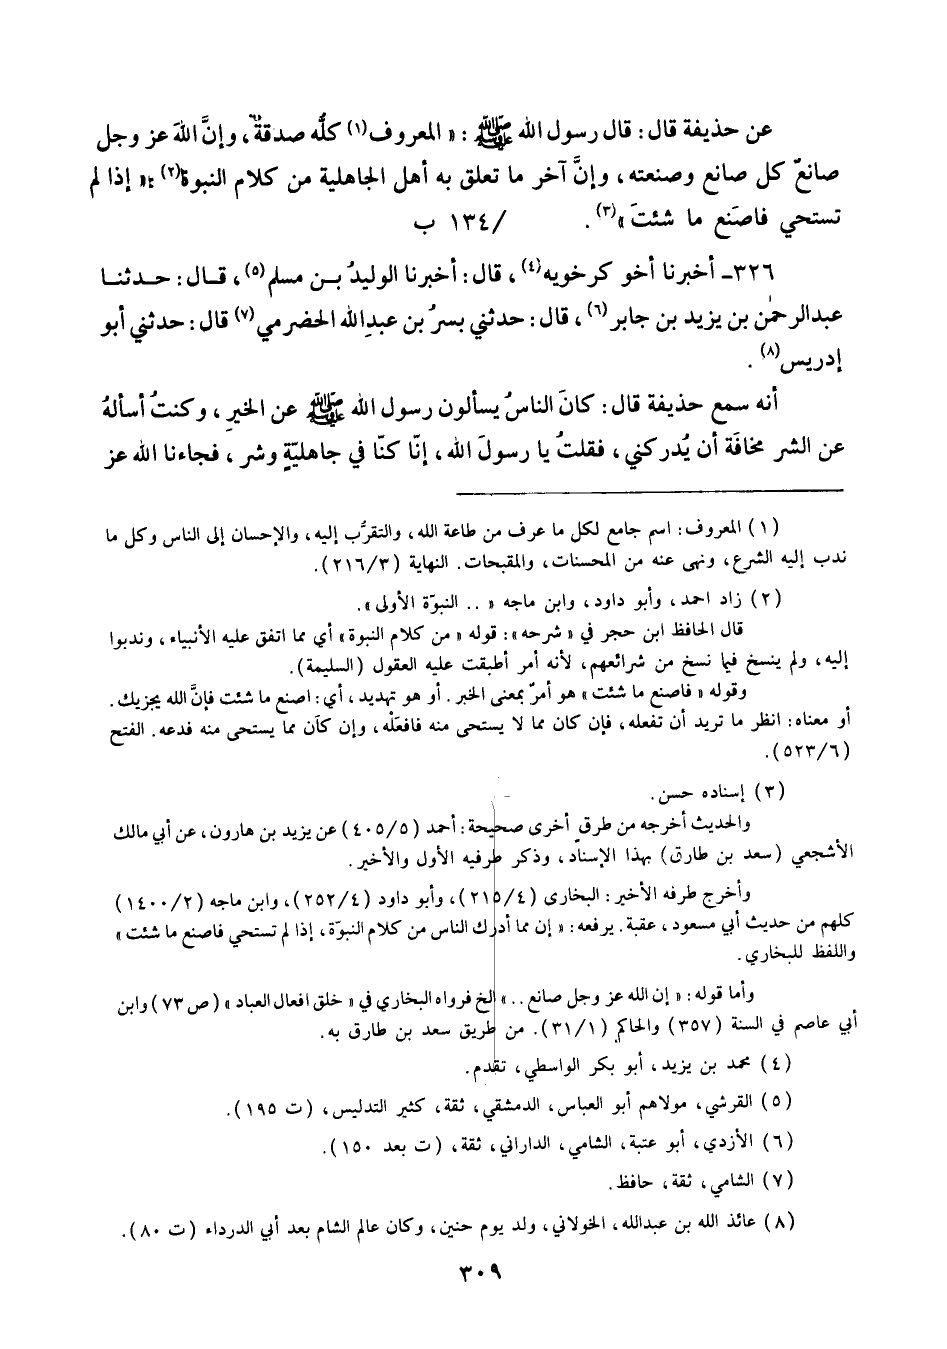 عن حذيفة قال: قال رسول الله ﷺ: « المعروف(١) كلُّه صدقةٌ، وإنَّ اللهَ عز وجل
صانعٌ كل صانع وصنعته، وإنَّ آخر ما تعلق به أهل الجاهلية من كلام النبوة(٢): « إذا لم
تستحي فاصنَع ما شئتَ »(٣). /١٣٤ ب
٣٢٦ـ أخبرنا أخو كرخويه(٤)، قال: أخبرنا الوليدُ بـن مسلم(٥)، قـال: حـدثنـا
عبدالرحمٰن بن يزيد بن جابر(٦)، قال: حدثني بسرُ بن عبدِالله الحضرمي(٧) قال: حدثني أبو
إدريس(٨).
أنه سمع حذيفة قال: كانَ الناسُ يسألون رسول الله ﷺ عن الخيرِ، وكنتُ أسألهُ
عن الشر مخافَة أن يُدركني، فقلتُ يا رسولَ الله، إنّا كنّا في جاهليّةٍ وشر، فجاءنا الله عز
(١) المعروف: اسم جامع لكل ما عرف من طاعة الله، والتقرُّب إليه، والإحسان إلى الناس وكل ما
ندب إليه الشرع، ونهى عنه من المحسنات، والمقبحات. النهاية (٢١٦/٣).
(٢) زاد احمد، وأبو داود، وابن ماجه « .. النبوّة الأولى ».
قال الحافظ ابن حجر في « شرحه »: قوله « من كلام النبوة » أي مما اتفق عليه الأنبياء، وندبوا
إليه، ولم ينسخ فيما نسخ من شرائعهم، لأنه أمر أطبقت عليه العقول (السليمة).
وقوله « فاصنع ما شئت » هو أمرٌ بمعنى الخبر. أو هو تهديد، أي: اصنع ما شئت فإنَّ الله يجزيك.
أو معناه: انظر ما تريد أن تفعله، فإن كان مما لا يستحى منه فافعَلْه، وإن كان مما يستحى منه فدعه. الفتح
(٥٢٣/٦).
(٣) إسناده حسن.
والحديث أخرجه من طرقٍ أخرى صحيحة: أحمد (٤٠٥/٥) عن يزيد بن هارون، عن أبي مالك
الأشجعي (سعد بن طارق) بهذا الإسناد، وذكر طرفيه الأول والأخير.
وأخرج طرفه الأخير: البخارى (٢١٥/٤)، وأبو داود (٢٥٢/٤)، وابن ماجه (١٤٠٠/٢)
كلهم من حديث أبي مسعود، عقبة. يرفعه: « إن مما أدرك الناس من كلام النبوّة، إذا لم تستحي فاصنع ما شئت »
واللفظ للبخاري.
وأما قوله: « إن الله عز وجل صانع .. » الخ فرواه البخاري في « خلق افعال العباد » (ص ٧٣) وابن
أبي عاصم في السنة (٣٥٧) والحاكم (٣١/١). من طريق سعد بن طارق به.
(٤) محمد بن يزيد، أبو بكر الواسطي، تقدم.
(٥) القرشي، مولاهم أبو العباس، الدمشقي، ثقة، كثير التدليس، (ت ١٩٥).
(٦) الأزدي، أبو عتبة، الشامي، الداراني، ثقة، (ت بعد ١٥٠).
(٧) الشامي، ثقة، حافظ.
(٨) عائذ الله بن عبدالله، الخولاني، ولد يوم حنين، وكان عالم الشام بعد أبي الدرداء (ت ٨٠).
٣٠٩